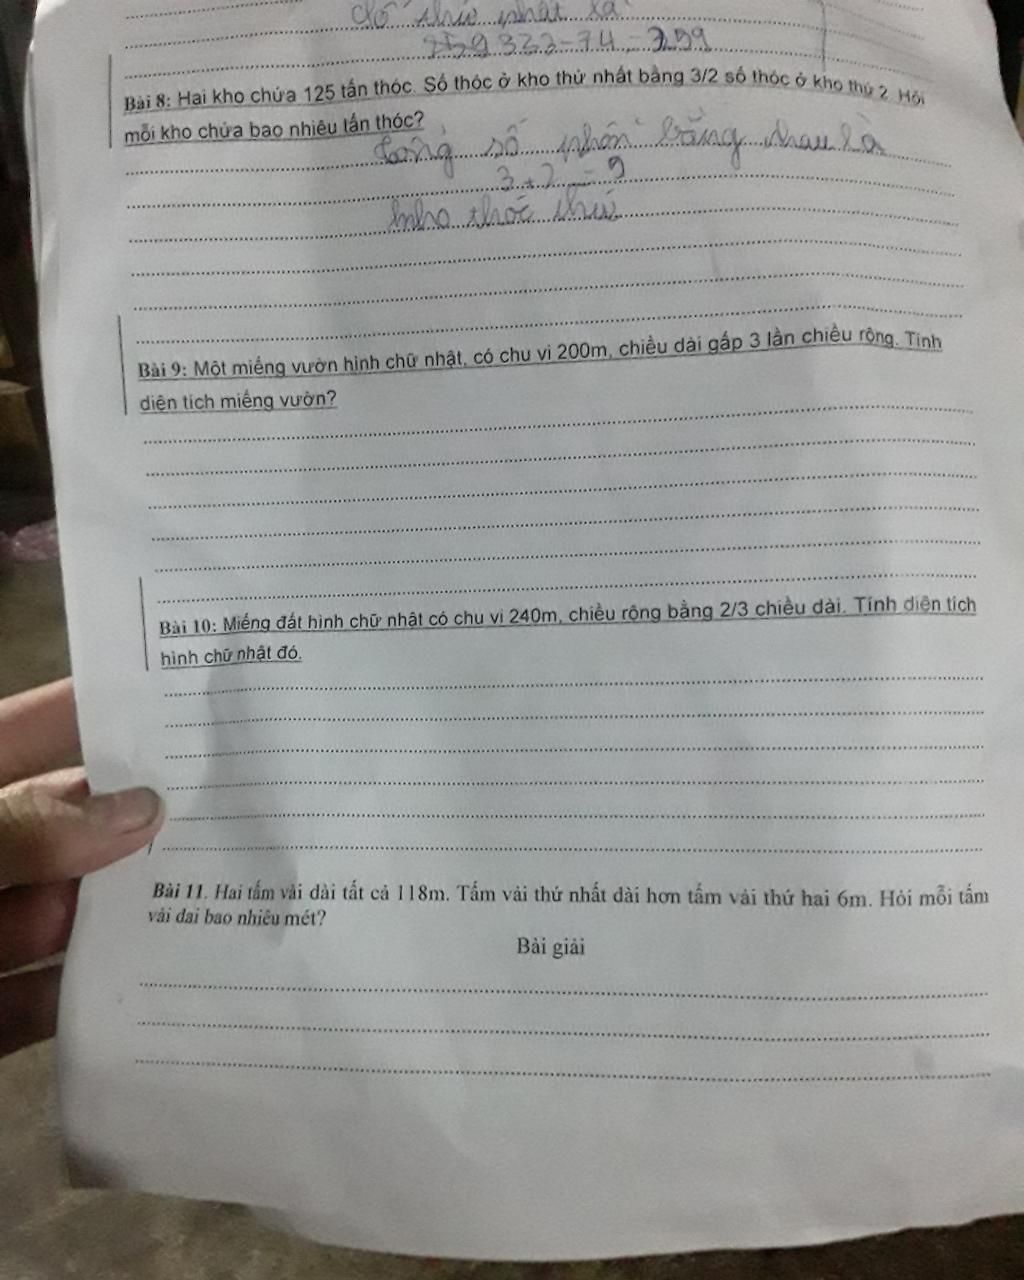 số thứ nhất là
333 - 74 = 259
Bài 8: Hai kho chứa 125 tấn thóc. Số thóc ở kho thứ nhất bằng 3/2 số thóc ở kho thứ 2. Hỏi
mỗi kho chứa bao nhiêu tấn thóc?
tổng số phần bằng nhau là
3 + 2 =
kho thóc thứ
Bài 9: Một miếng vườn hình chữ nhật, có chu vi 200m, chiều dài gấp 3 lần chiều rộng. Tính
diện tích miếng vườn?
Bài 10: Miếng đất hình chữ nhật có chu vi 240m, chiều rộng bằng 2/3 chiều dài. Tính diện tích
hình chữ nhật đó.
Bài 11. Hai tấm vải dài tất cả 118m. Tấm vải thứ nhất dài hơn tấm vải thứ hai 6m. Hỏi mỗi tấm
vải dai bao nhiêu mét?
Bài giải